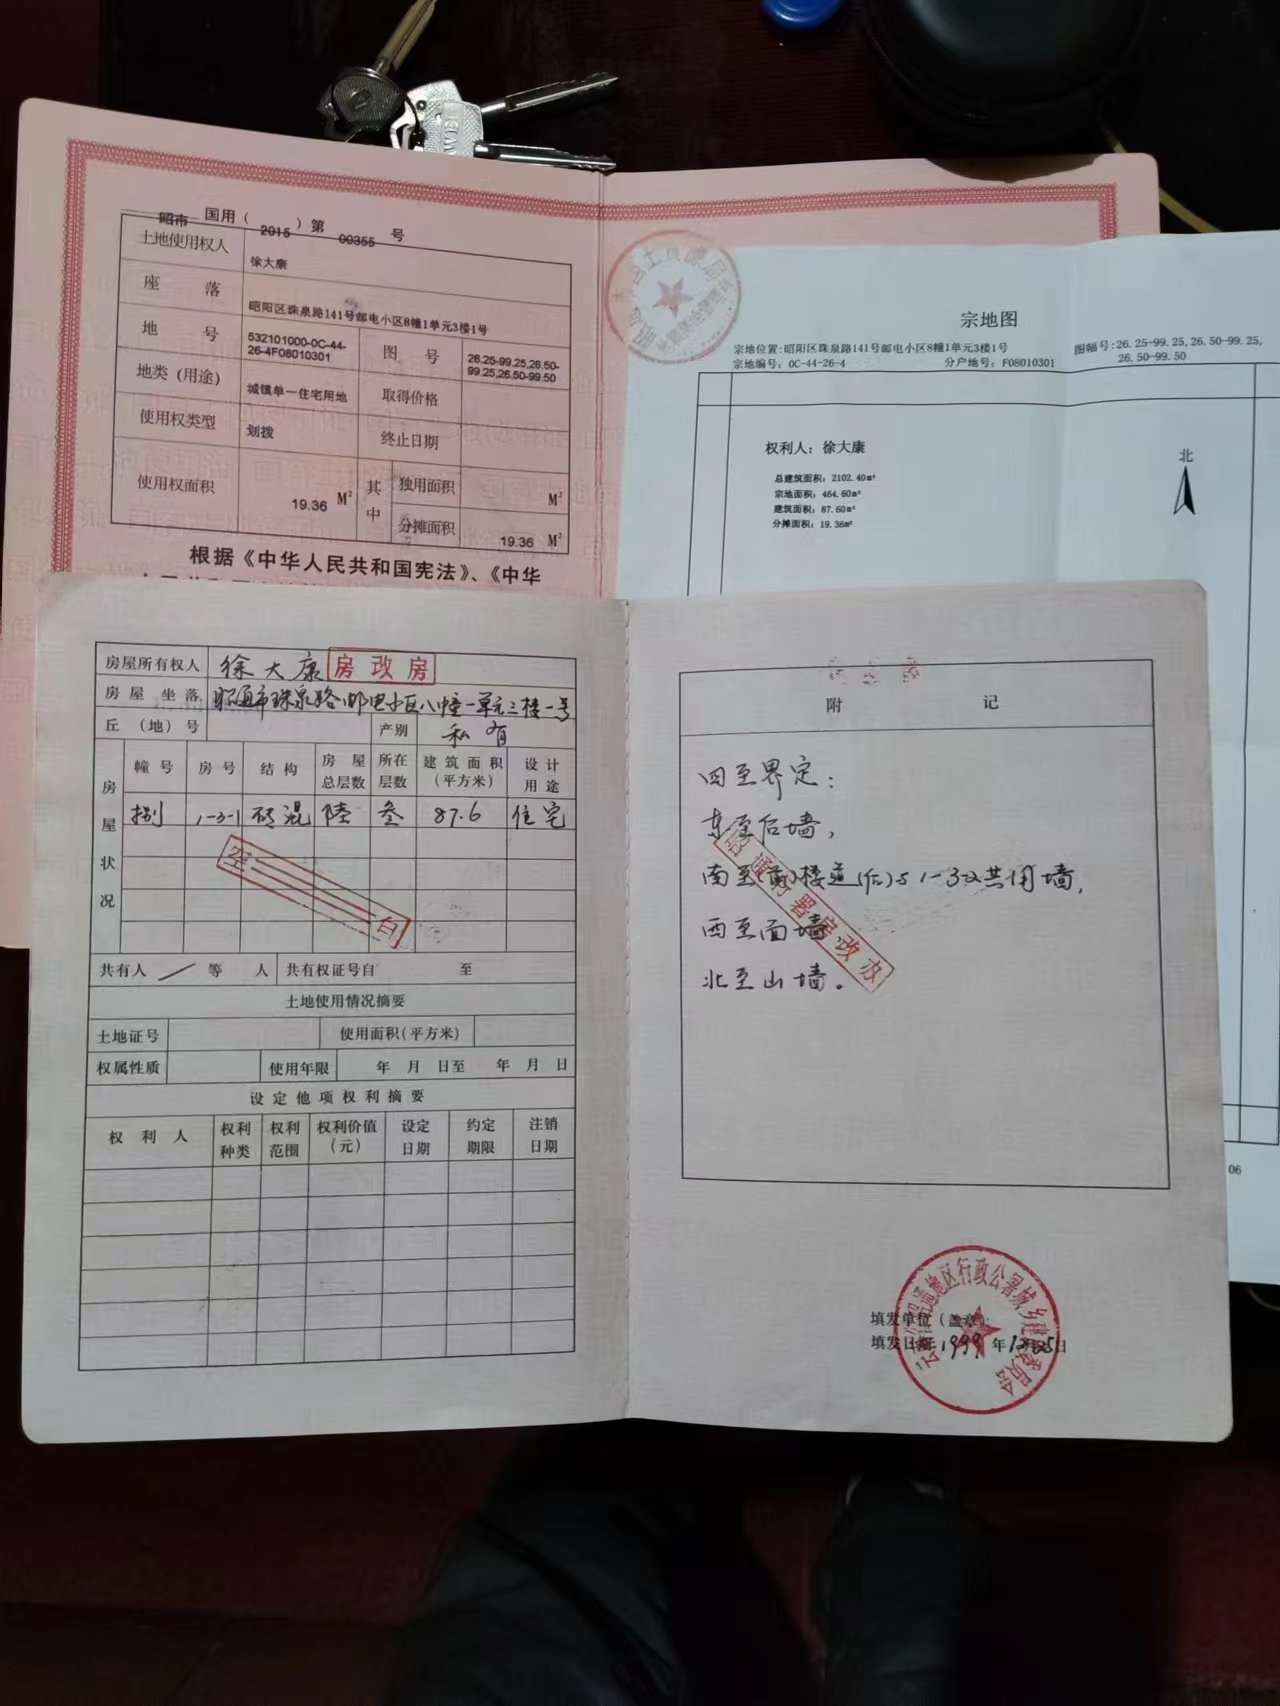 昭市 国用(2015)第 00355 号
土地使用权人 徐大康
座落 昭阳区珠泉路141号邮电小区8幢1单元3楼1号
地号 532101000-0C-44-26-4F08010301 图号 26.25-99.25,26.50-99.25,26.50-99.50
地类(用途) 城镇单一住宅用地 取得价格
使用权类型 划拨 终止日期
使用权面积 19.36 M² 其中 独用面积 M²
分摊面积 19.36 M²
根据《中华人民共和国宪法》、《中华
宗地图
宗地位置:昭阳区珠泉路141号邮电小区8幢1单元3楼1号
图幅号:26.25-99.25,26.50-99.25,
26.50-99.50
宗地编号:0C-44-26-4 分户地号:F08010301
权利人:徐大康
总建筑面积:2102.40m²
宗地面积:464.60m²
建筑面积:87.60m²
分摊面积:19.36m²
北
06
房屋所有权人 徐大康 房改房
房屋坐落 昭通市珠泉路邮电小区八幢一单元三楼一号
丘(地)号 产别 私有
房屋状况
幢号 房号 结构 房屋总层数 所在层数 建筑面积(平方米) 设计用途
捌 1-3-1 砖混 陆 叁 87.6 住宅
空白
共有人 / 等 人 共有权证号自 至
土地使用情况摘要
土地证号 使用面积(平方米)
权属性质 使用年限 年 月 日至 年 月 日
设定他项权利摘要
权利人 权利种类 权利范围 权利价值(元) 设定日期 约定期限 注销日期
附记
四至界定:
东至后墙,
南至(前)楼道(后)与1-3-2共用墙,
西至面墙
北至山墙。
昭通行署房改办
填发单位(盖章):
填发日期:1999年12月25日
云南省昭通地区行政公署城乡建设委员会